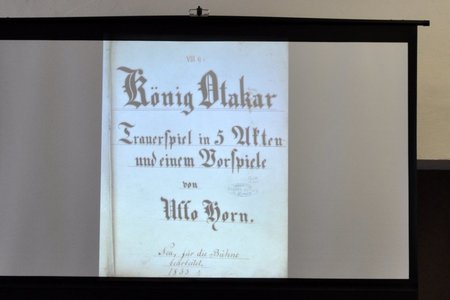 VIII 6.
König Otakar
Trauerspiel in 5 Akten
und einem Vorspiele
von
Uffo Horn.
Neu, für die Bühne
1855